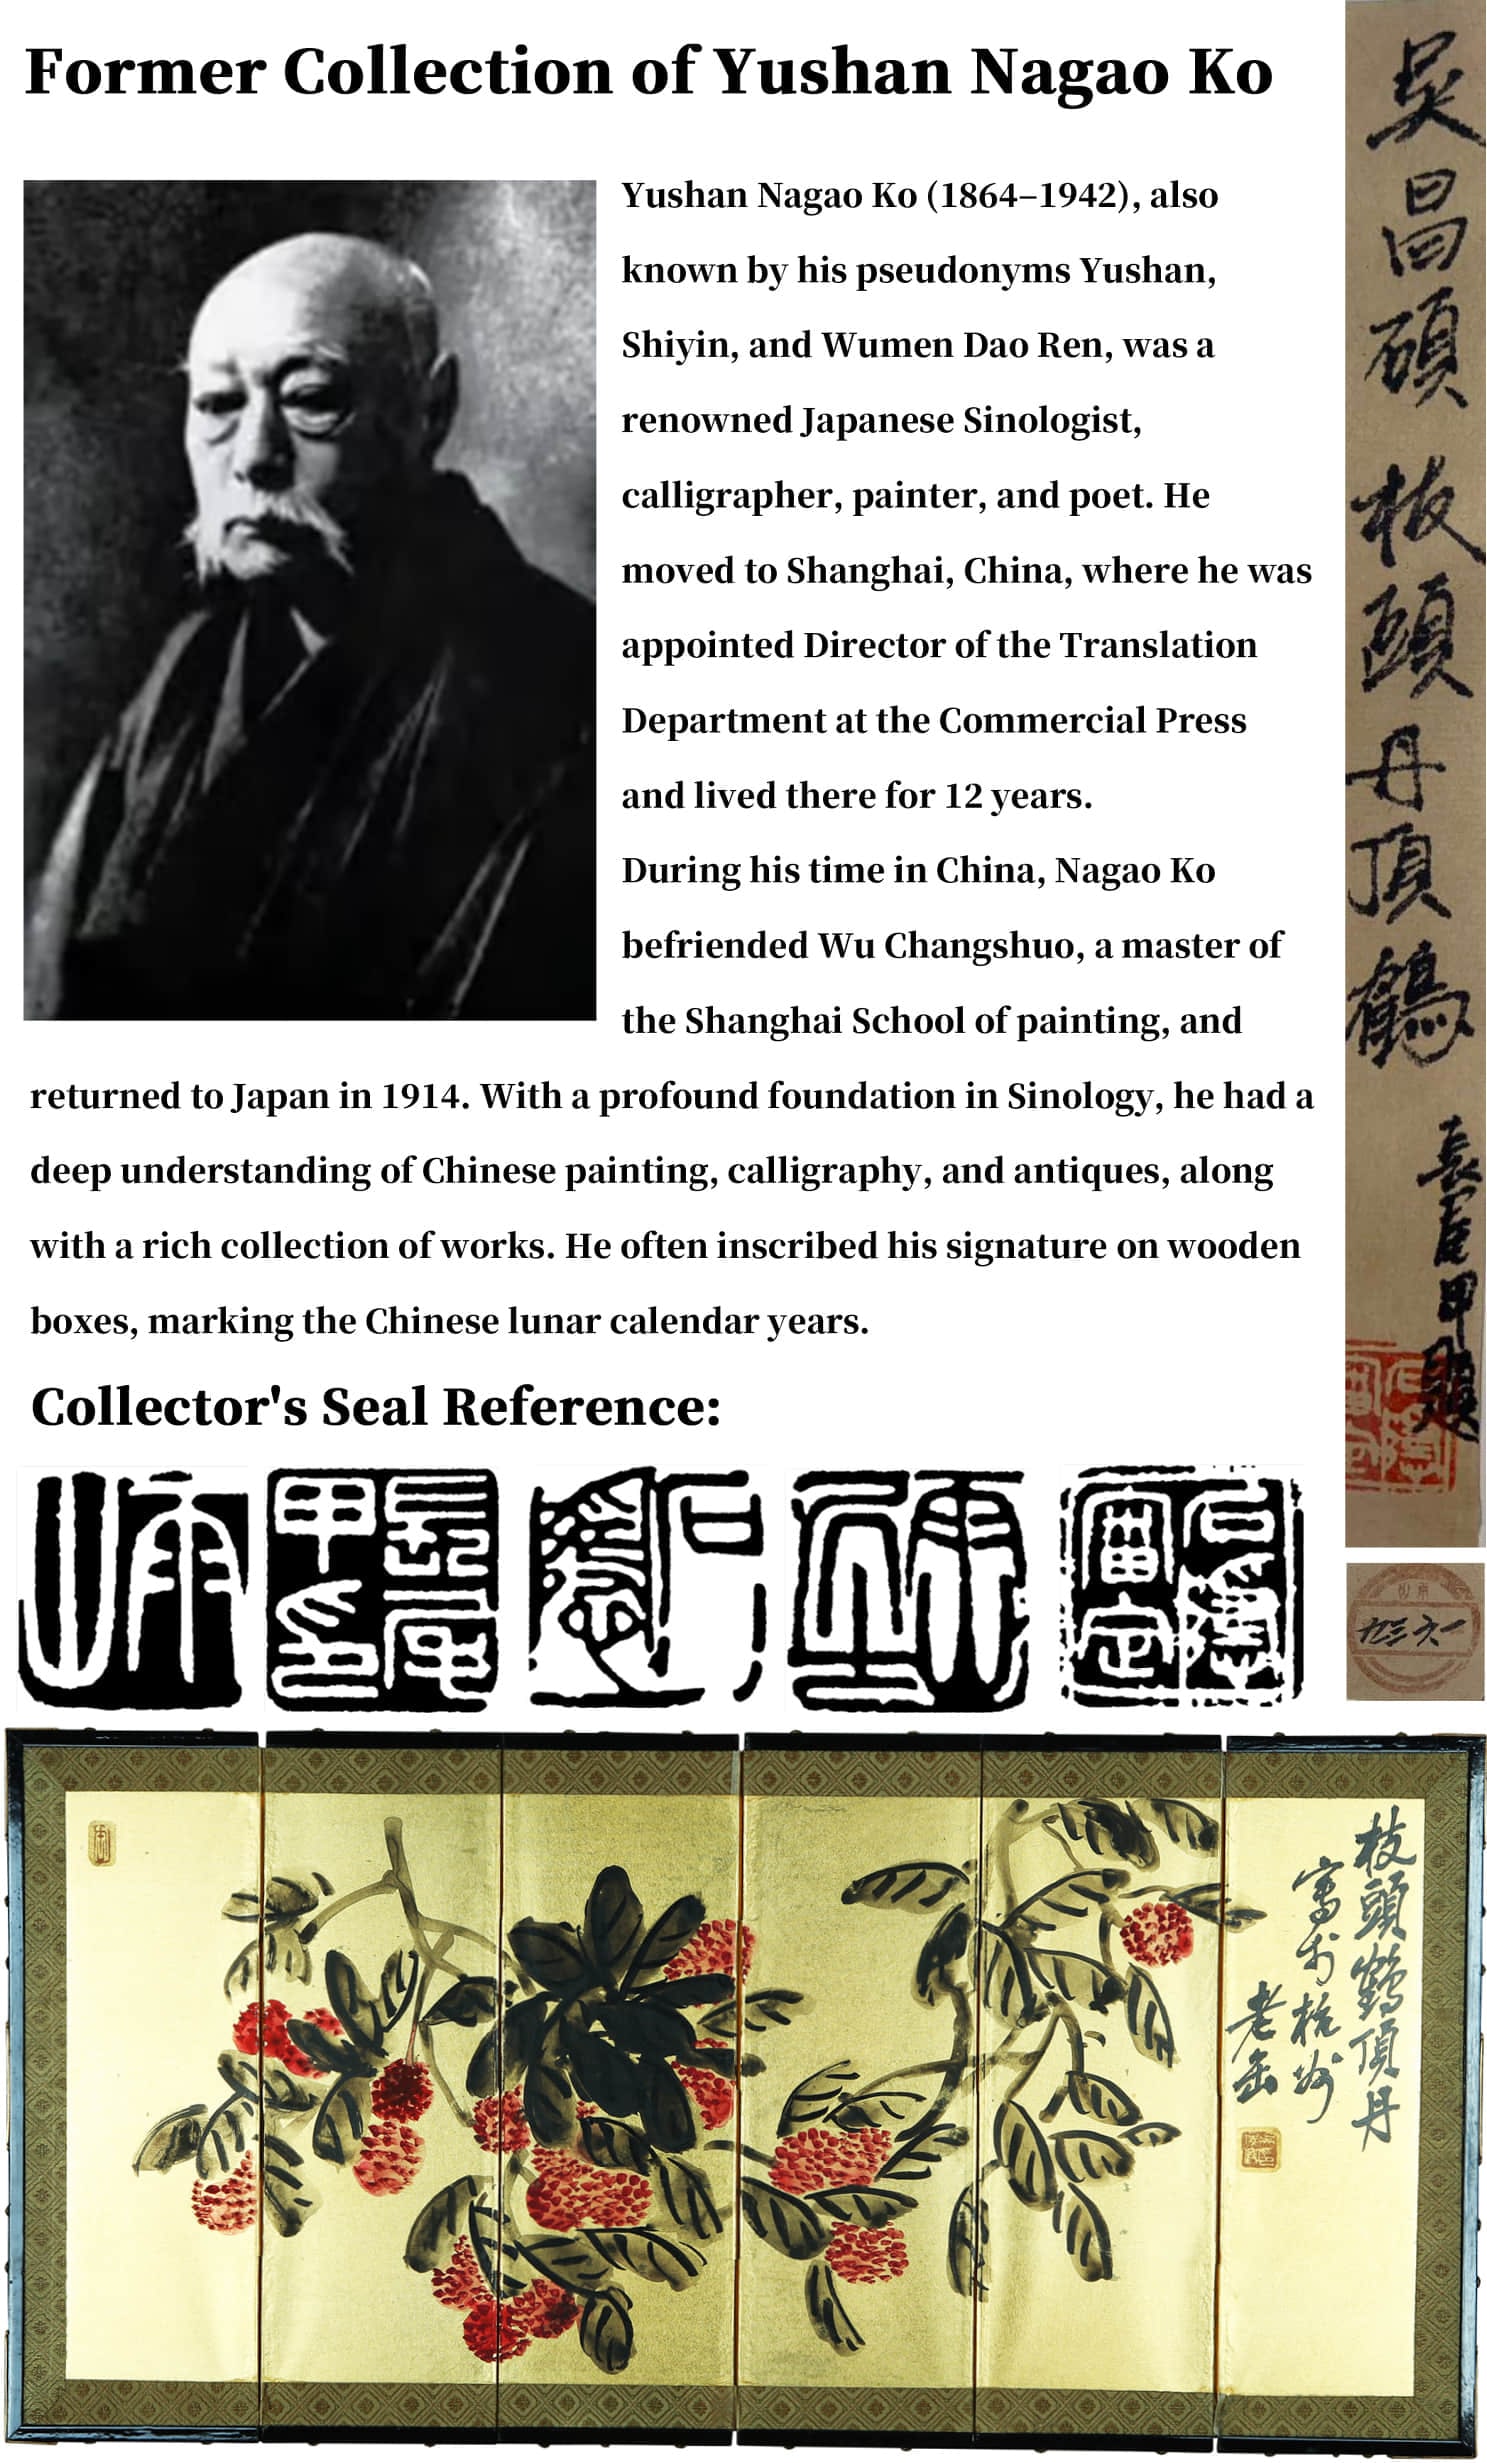 Former Collection of Yushan Nagao Ko
Yushan Nagao Ko (1864–1942), also
known by his pseudonyms Yushan,
Shiyin, and Wumen Dao Ren, was a
renowned Japanese Sinologist,
calligrapher, painter, and poet. He
moved to Shanghai, China, where he was
appointed Director of the Translation
Department at the Commercial Press
and lived there for 12 years.
During his time in China, Nagao Ko
befriended Wu Changshuo, a master of
the Shanghai School of painting, and
returned to Japan in 1914. With a profound foundation in Sinology, he had a
deep understanding of Chinese painting, calligraphy, and antiques, along
with a rich collection of works. He often inscribed his signature on wooden
boxes, marking the Chinese lunar calendar years.
吳昌碩 枝頭丹頂鶴
長尾甲題
Collector's Seal Reference:
雨山
長尾甲印
石隱
石隱審定
九三六一
枝頭鶴頂丹
寫於杭州
老缶